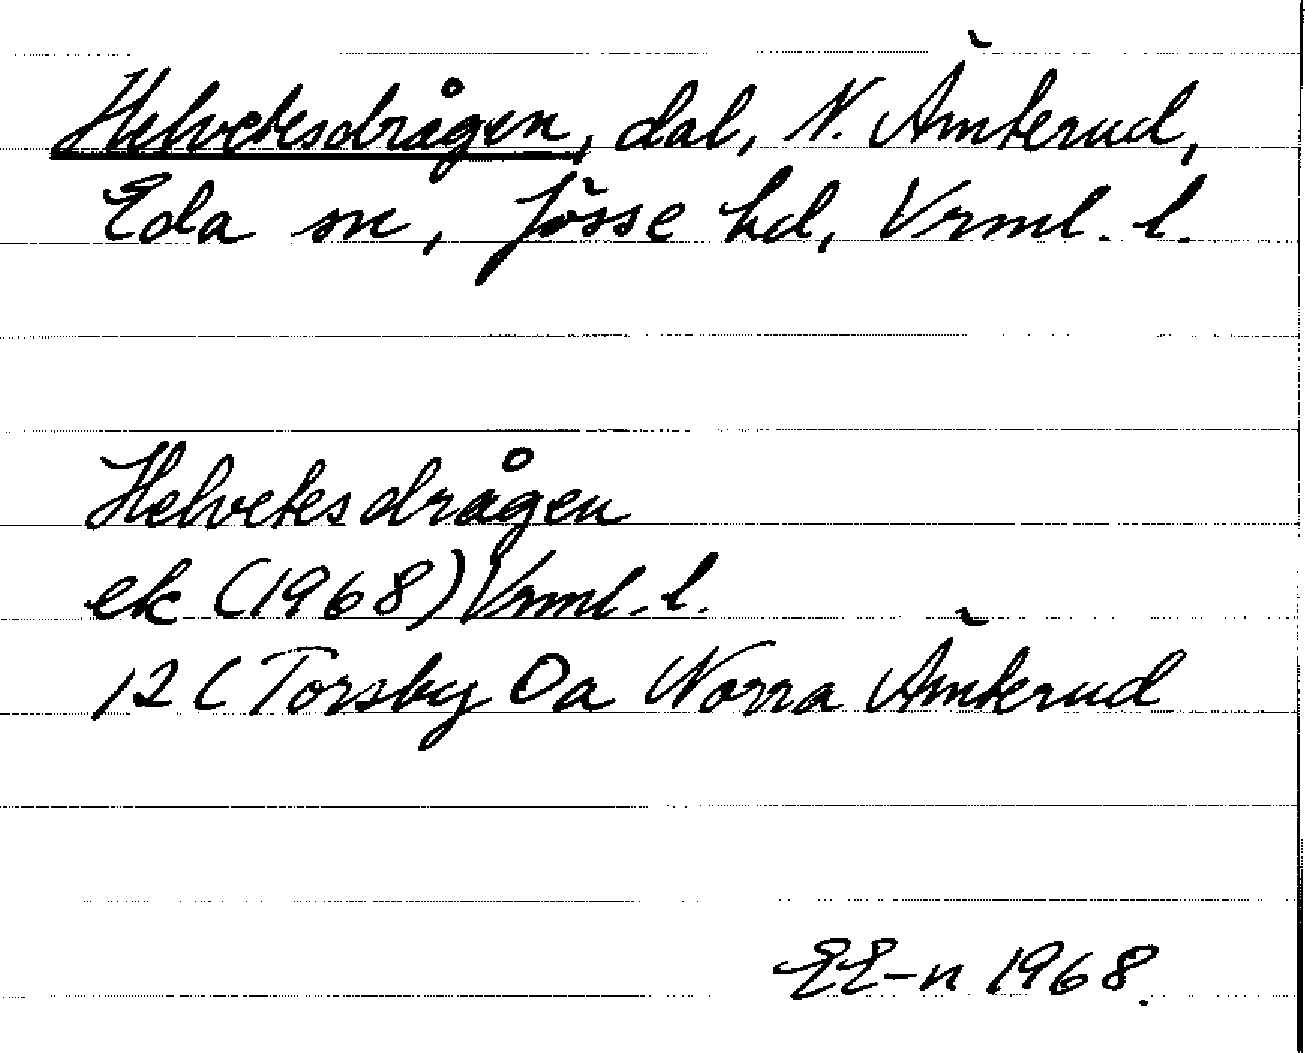 Helvetesdrågen, dal, N. Ämterud,
Eda sn, Jösse hd, Vrml. l.
Helvetesdrågen
ek (1968) Vrml. l.
12 C Torsby Oa Norra Ämterud
EE-n 1968.